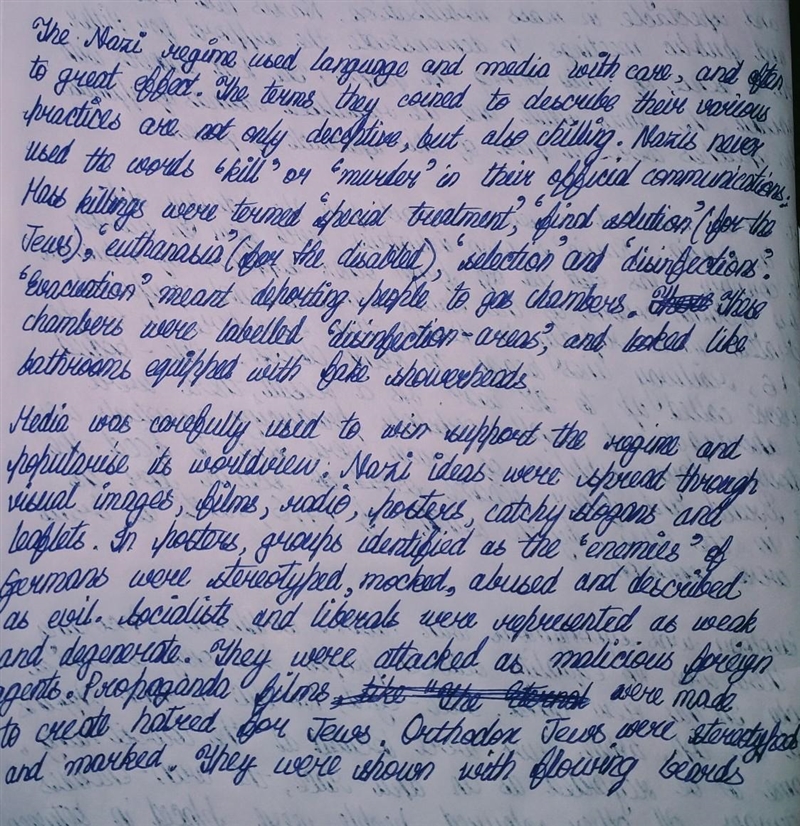 The Nazi regime used language and media with care, and often
to great effect. The terms they coined to describe their various
practices are not only deceptive, but also chilling. Nazis never
used the words "kill" or "murder" in their official communications;
Mass killings were termed "special treatment", "final solution" (for the
Jews), "euthanasia" (for the disabled), "selection" and "disinfections".
"Evacuation" meant deporting people to gas chambers. These
chambers were labelled "disinfection-areas", and looked like
bathrooms equipped with fake showerheads
Media was carefully used to win support the regime and
popularise its worldview. Nazi ideas were spread through
visual images, films, radio, posters, catchy slogans and
leaflets. In posters, groups identified as the "enemies" of
Germans were stereotyped, mocked, abused and described
as evil. Socialists and liberals were represented as weak
and degenerate. They were attacked as malicious foreign
agents. Propaganda films like "The Eternal were made
to create hatred for Jews. Orthodox Jews were stereotyped
and marked. They were shown with flowing beards